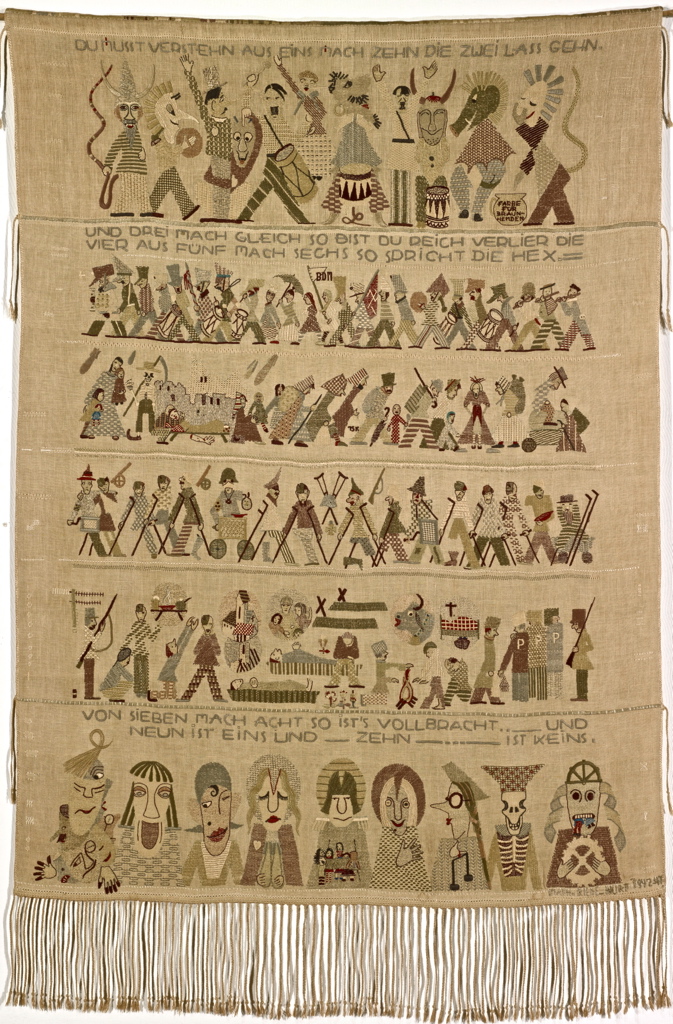 DU MUSST VERSTEHN AUS EINS MACH ZEHN DIE ZWEI LASS GEHN.
FARBE
FÜR
BRAUN-
HEMDEN
UND DREI MACH GLEICH SO BIST DU REICH VERLIER DIE
VIER AUS FÜNF MACH SECHS SO SPRICHT DIE HEX.=
BDM
P P P
VON SIEBEN MACH ACHT SO IST'S VOLLBRACHT..__ UND
NEUN IST EINS UND — ZEHN —.... IST KEINS.